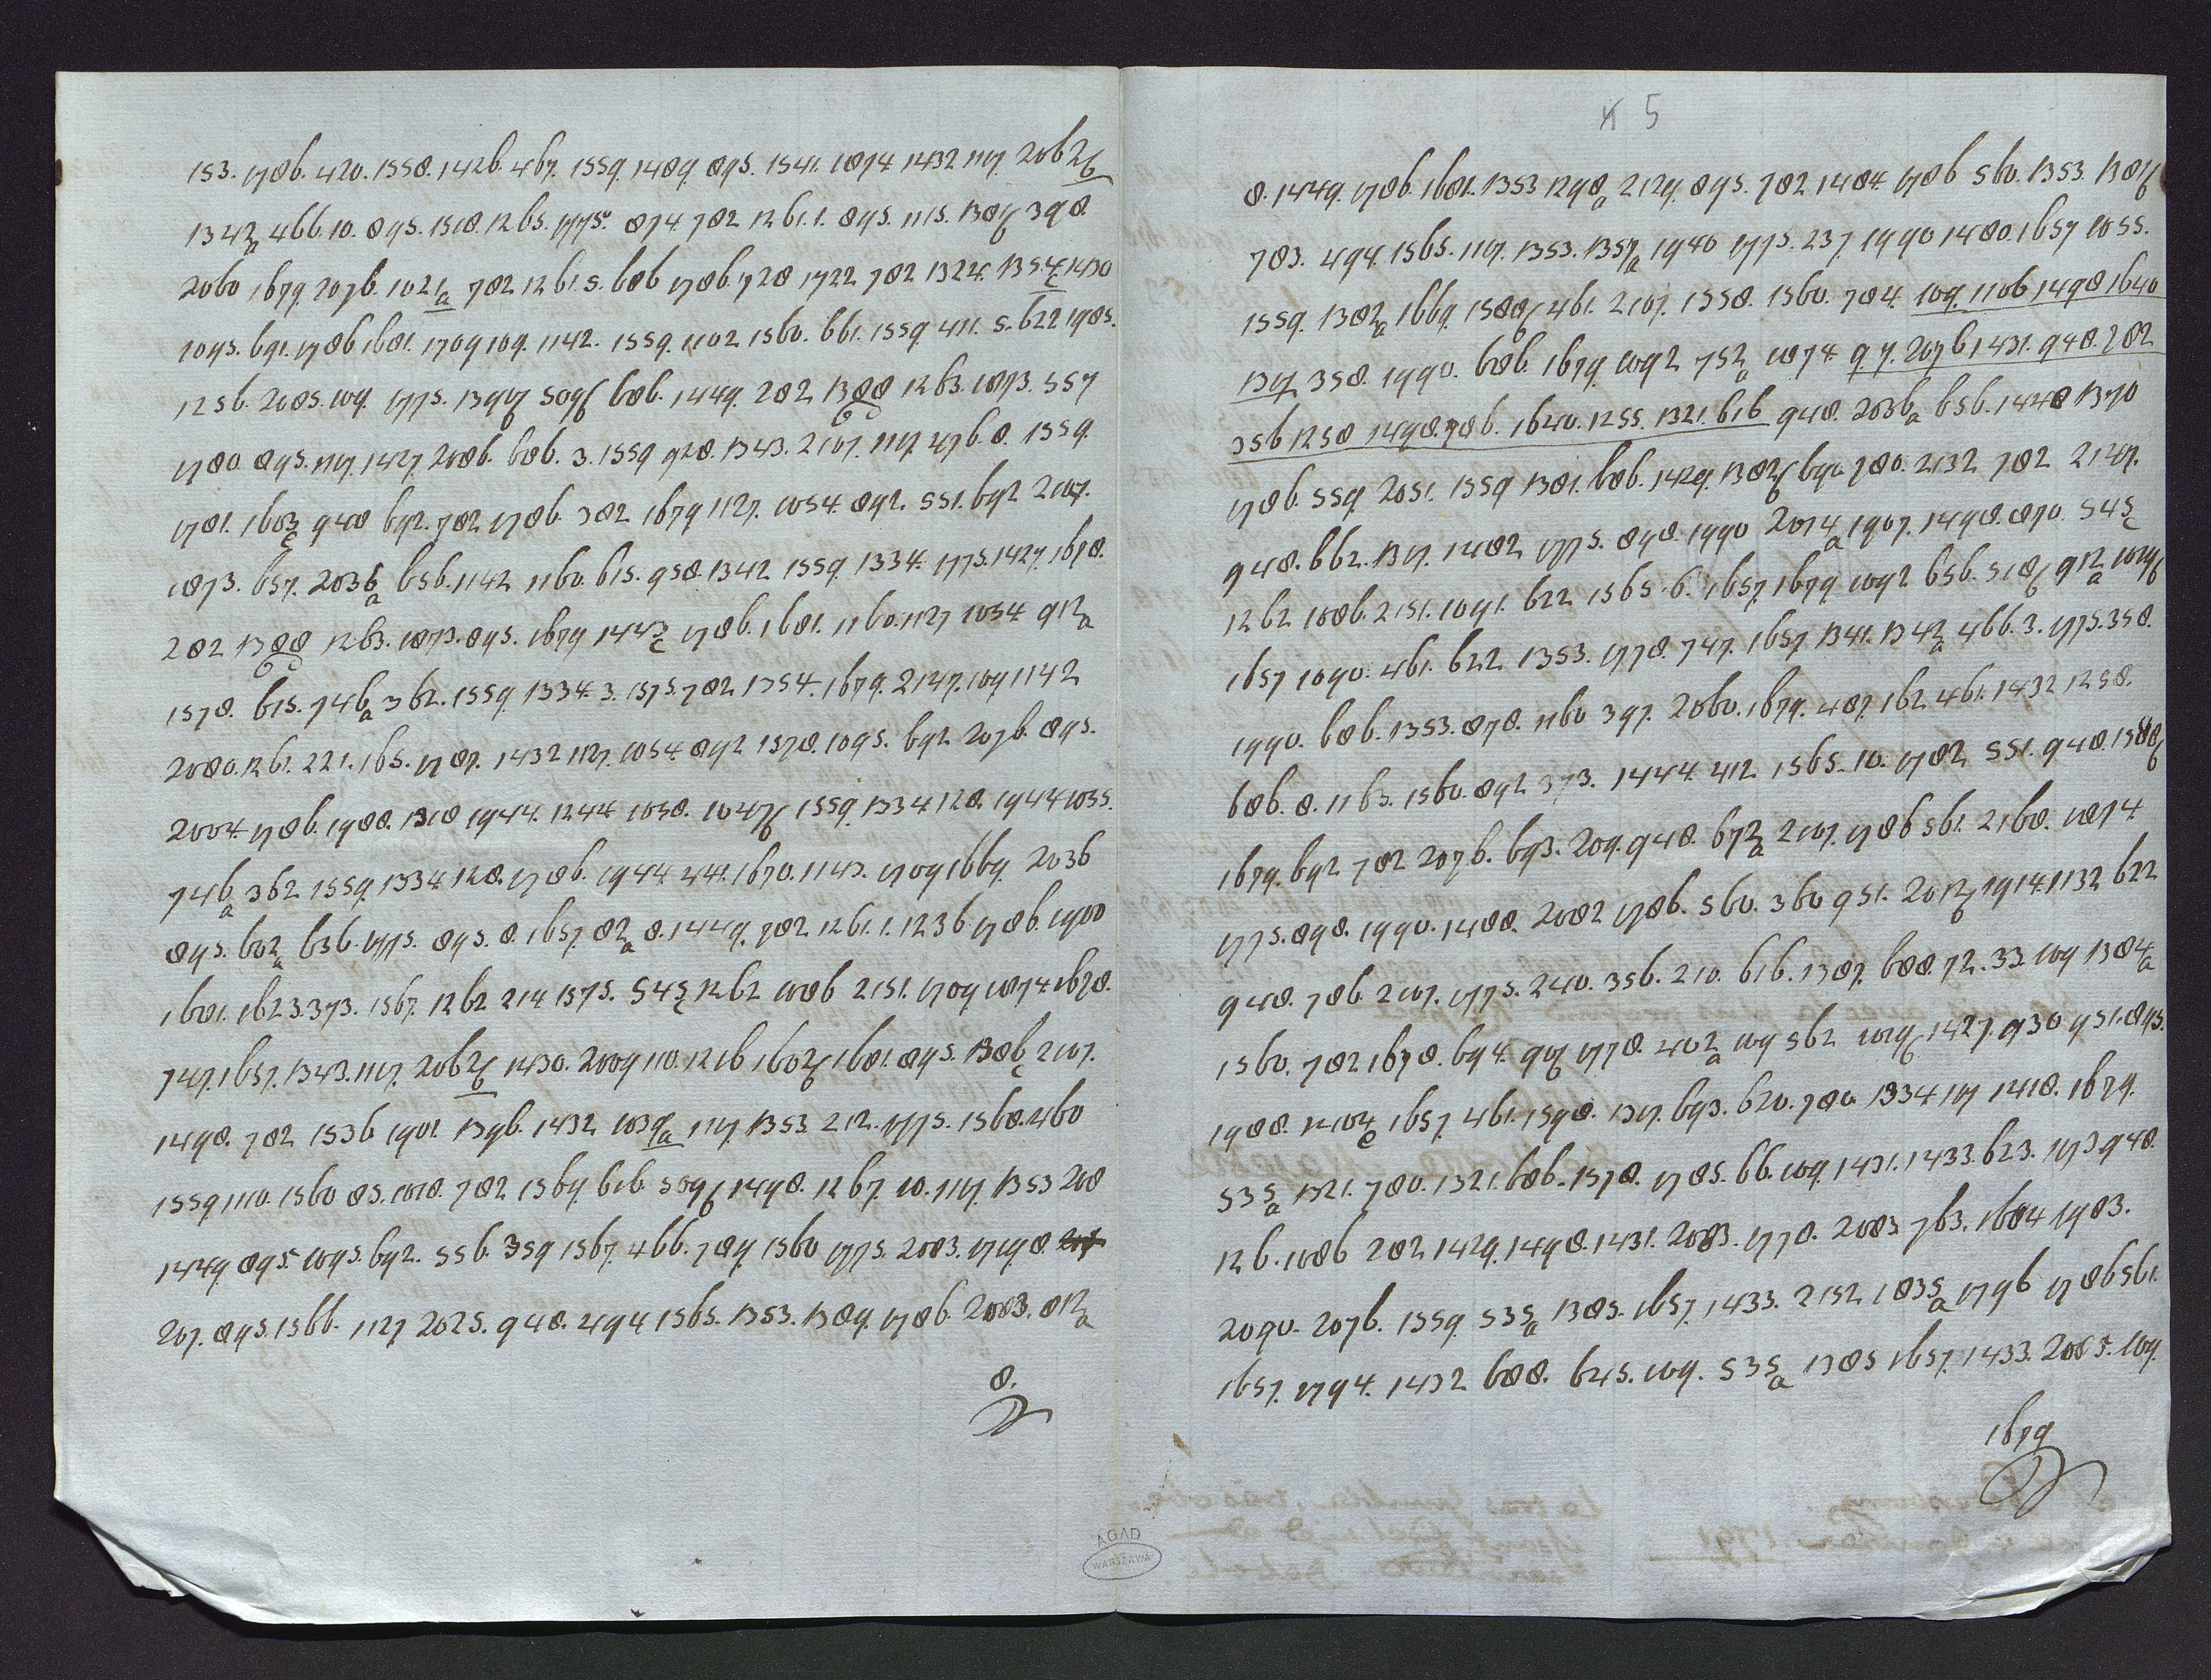 153. 1786. 420. 1558. 1426. 467. 1559. 1489. 895. 1541. 1874. 1432 1117. 2062b
1342a 466. 10. 895. 1518. 1265. 1775. 874. 782 1261. 1. 895. 1115. 1387b 398.
2060 1679. 2076. 1021a 782 1261. 5. 686 1786. 728 1722 782 1324. 1354c 1430
1095. 691. 1786 1681. 1709 109. 1142. 1559. 1102 1560. 661. 1559 411. 5. 622 1985.
1256. 2085. 109. 1775. 1397b 509b 686. 1449. 282 1388b 1263. 1873. 557
1780 895. 1117. 1427. 2086. 686. 3. 1559 928. 1343. 2107. 1117. 476. 8. 1559.
1781. 1603c 948 692. 782 1786. 382 1679 1127. 1054. 892. 551. 692 2107.
1873. 657. 2036a 656. 1142 1160. 615. 958. 1342 1559. 1334. 1775. 1427. 1678.
282 1388b 1263. 1873. 895. 1679 1443c 1786. 1681. 1160. 1127 1054 912a
1578. 615. 746a 362. 1559. 1334. 3. 1575. 782 1354. 1679. 2127. 109 1142
2080. 1261. 221. 165. 1787. 1432 1127. 1054. 892 1578. 1095. 692 2076. 895.
2004. 1786. 1988. 1318 1944. 1244. 1058. 1047b 1559. 1334. 128. 1944 1035.
746a 362 1559. 1334. 128. 1786. 1944. 441. 1670. 1143. 1709 1669. 2036
895. 602a 636. 1775. 895. 8. 1657. 82a 8. 1449. 782 1261. 1. 1236. 1786. 1900
1681. 1623. 373. 1567. 1262 214 1575. 545c 1262 1086 2151. 1709 1874. 1678.
747. 1657. 1343. 1117. 2062b 1430. 2009 110. 1216 1602b 1681. 895. 1386c 2107.
1498. 782 1536 1901. 1396. 1432 1039a 1117. 1353. 212. 1775. 1568. 460
1559. 1110. 1560 85. 1018. 782 1569. 616. 509b 1498. 1267. 10. 1117. 1353 208
1449. 895. 1095. 692. 556. 359 1567. 466. 787. 1560 1775. 2083. 1719. 8.
207. 895. 1566. 1127 2025. 948. 494 1565. 1353. 1389. 1786. 2083. 812a
8.
AGAD
WARSZAWA
5
8. 1449. 1786. 1681. 1353 1298a 2129. 895. 782 1484. 1786 560. 1353. 1387b
783. 494. 1565. 1197. 1353. 1357a 1940 1775. 237. 1990 1480. 1657 1055.
1559. 1382a 1669. 1588b 461. 2107. 1558. 1560. 784. 109. 1106 1498 1640
1317 358. 1990. 686. 1679. 1092 752a 1074. 97. 2076 1431. 948. 782
356 1258 1498. 786. 1640. 1255. 1321. 616 948. 2036a 656. 1448 1370
1786. 559. 2051. 1559 1381. 686. 1429. 1382b 690. 780. 2132 782 2127.
948. 662. 1317. 1482 1775. 898. 1990 2014a 1907. 1498. 870. 545c
1262 1086. 2151. 1091. 622 1565. 6. 1657. 1679. 1092 656. 518b 912a 1019b
1657 1090. 461. 622 1353. 1778. 747. 1657 1341. 1342a 466. 3. 1775. 358.
1990. 686. 1353. 878. 1160 397. 2060. 1679. 487. 162. 461. 1432 1258.
686. 8. 1163. 1560. 892 373. 1444. 412 1565. 10. 1782 551. 948. 1588b
1679. 692 782 2076. 693. 209. 948. 672a 2107. 1786 561. 2168. 1874
1775. 898. 1990. 1488. 2082 1786. 560. 360 951. 2012b 1914. 1132 622
948. 786. 2107. 1775. 240. 356. 210. 616. 1387. 688. 72. 33. 109 1384a
1560. 782 1678. 694. 907 1778. 402a 109 562 1019b 1427. 930 951. 895.
1988. 1204c 1657. 461. 1598. 1317. 693. 620. 780. 1334 117 1418. 1679.
535a 1321. 780. 1321. 686. 1578. 1785. 66. 109. 1431. 1433. 623. 173 948.
126. 1086 282 1429. 1498. 1431. 2083. 1778. 2083 763. 1684 1983.
2090. 2076. 1559. 535a 1385. 1657. 1433. 2132 1835a 1796 1786 561.
1657. 1794. 1432 688. 645. 109. 535a 1385 1657. 1433. 2083. 109.
1679